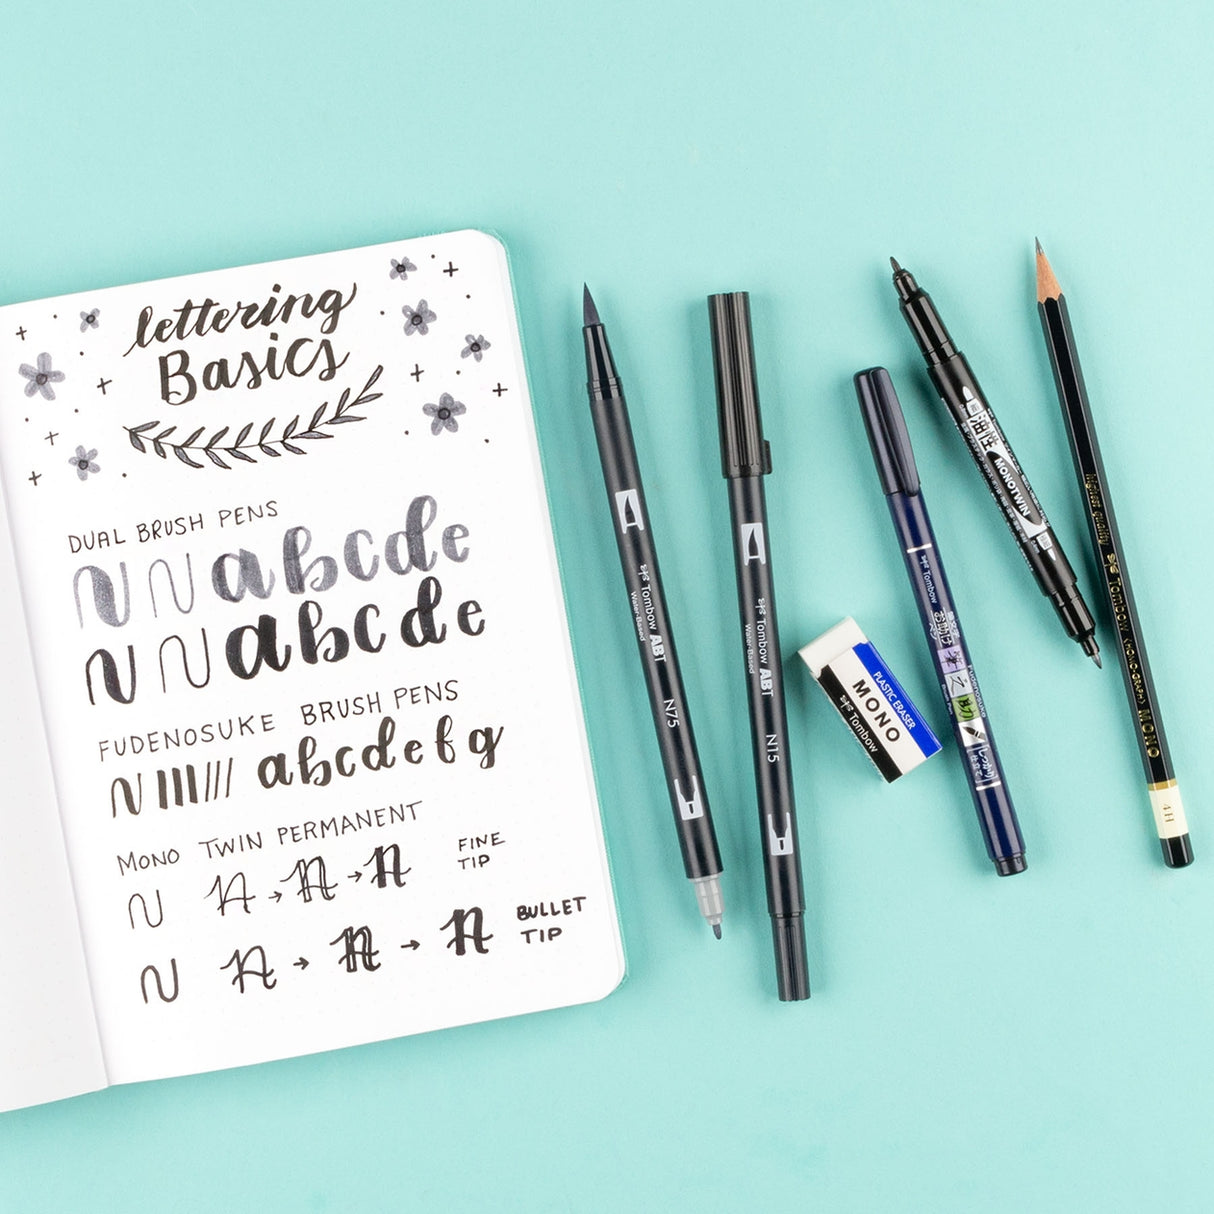 lettering
Basics
DUAL BRUSH PENS
N N abcde
N N abcde
FUDENOSUKE BRUSH PENS
N abcdefg
MONO TWIN PERMANENT
N A → A → A FINE TIP
N A → A → A BULLET TIP
Tombow ABT
Water-Based
N75
Tombow ABT
Water-Based
N15
PLASTIC ERASER
MONO
Tombow
Tombow
Fudenosuke
しっかり
仕立て
油性
MONOTWIN
highest quality
Tombow
MONO
4H